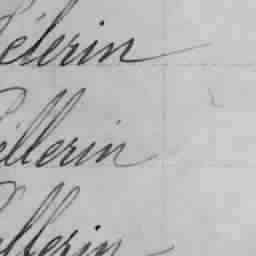 Pélerin
Pellerin
Pellerin